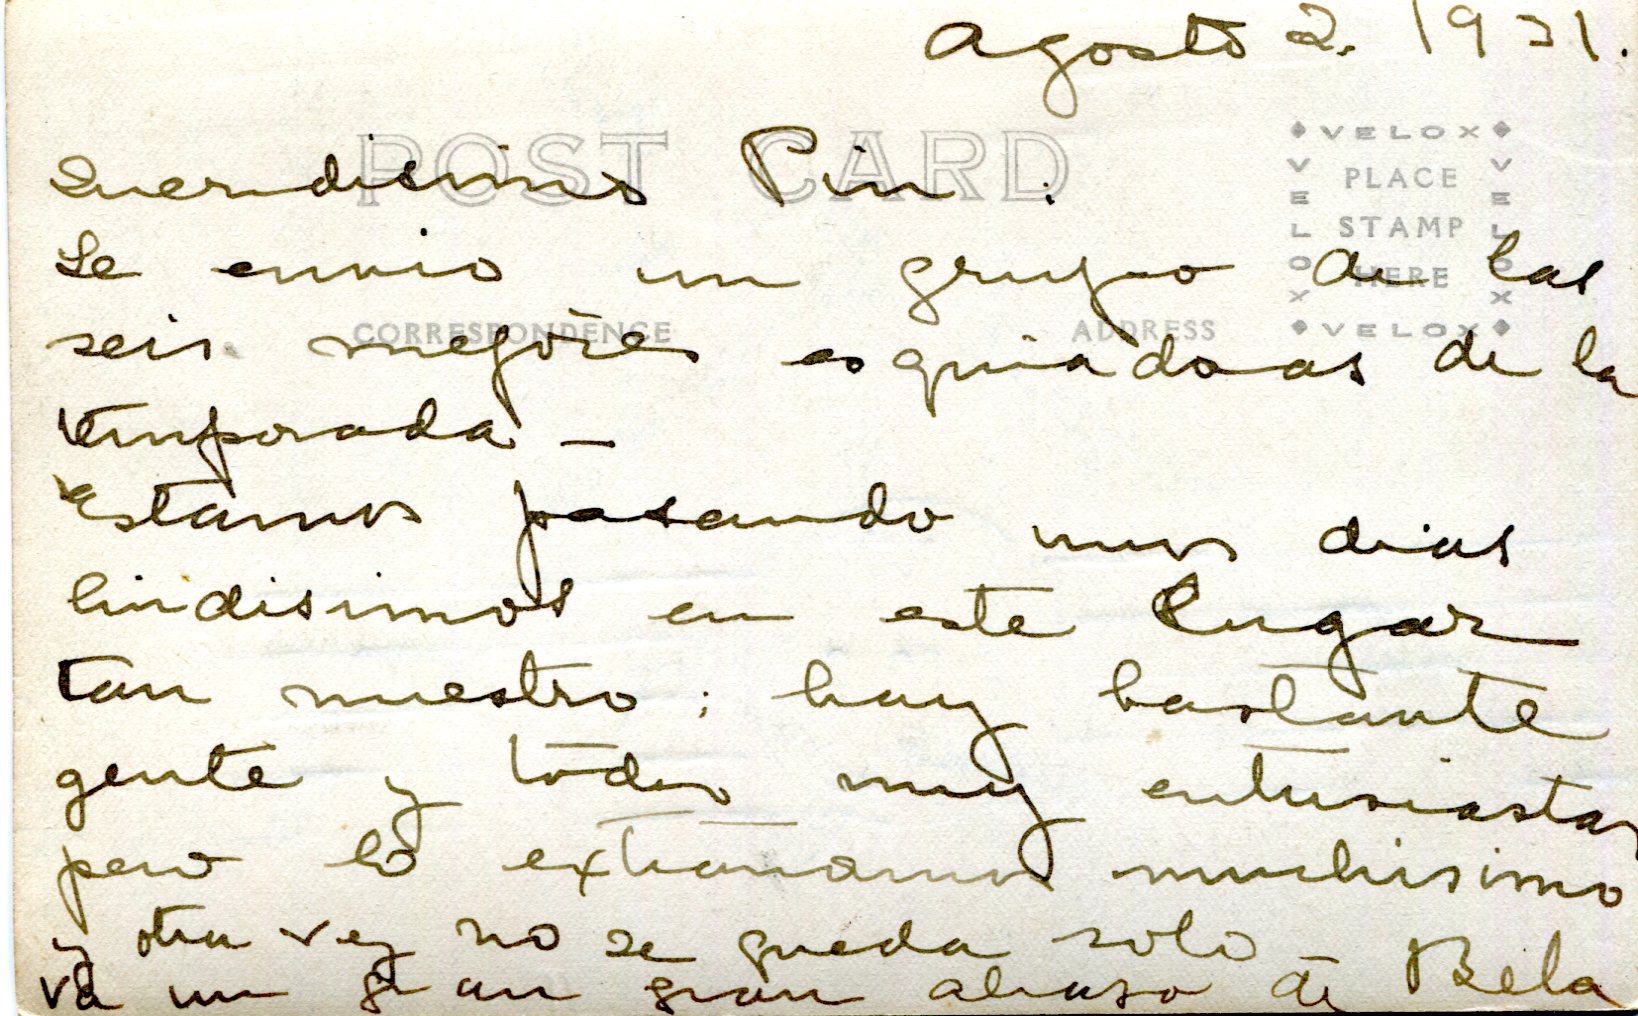 Agosto 2. 1931.
POST CARD
Queridisimo Pin :
VELOX
VELOX
PLACE
STAMP
HERE
VELOX
VELOX
Le envio un grupo de las
CORRESPONDENCE
ADDRESS
seis mejores esquiadoras de la
temporada —
Estamos pasando unos dias
lindisimos en este lugar
tan nuestro ; hay bastante
gente y todos muy entusiastas
pero lo extrañamos muchisimo
y otra vez no se queda solo
va un gran gran abraso de Bela